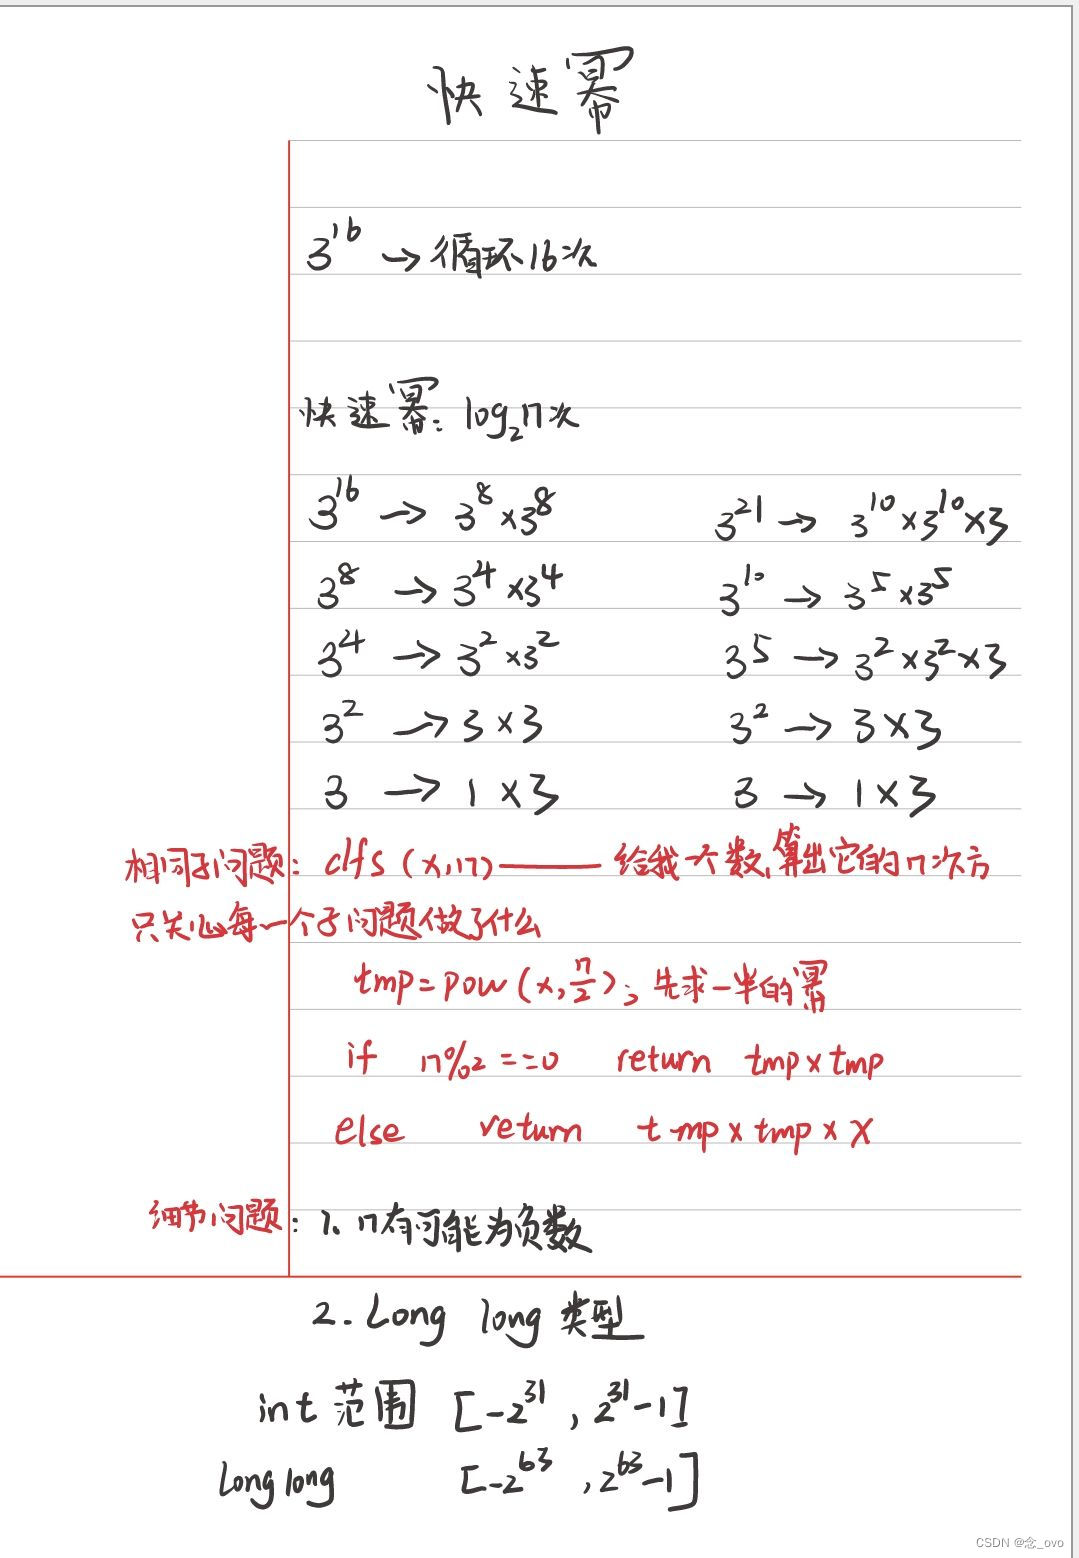 快速幂
3^16 → 循环16次
快速幂: log₂n次
3^16 → 3^8×3^8 3^21 → 3^10×3^10×3
3^8 → 3^4×3^4 3^10 → 3^5×3^5
3^4 → 3^2×3^2 3^5 → 3^2×3^2×3
3^2 → 3×3 3^2 → 3×3
3 → 1×3 3 → 1×3
相同子问题: dfs(x,n)——给我一个数,算出它的n次方
只关心每一个子问题做了什么
tmp=pow(x,n/2); 先求一半的幂
if n%2==0 return tmp×tmp
else return tmp×tmp×x
细节问题: 1. n有可能为负数
2. Long long 类型
int 范围 [-2^31, 2^31-1]
Long long [-2^63, 2^63-1]
CSDN @念_ovo